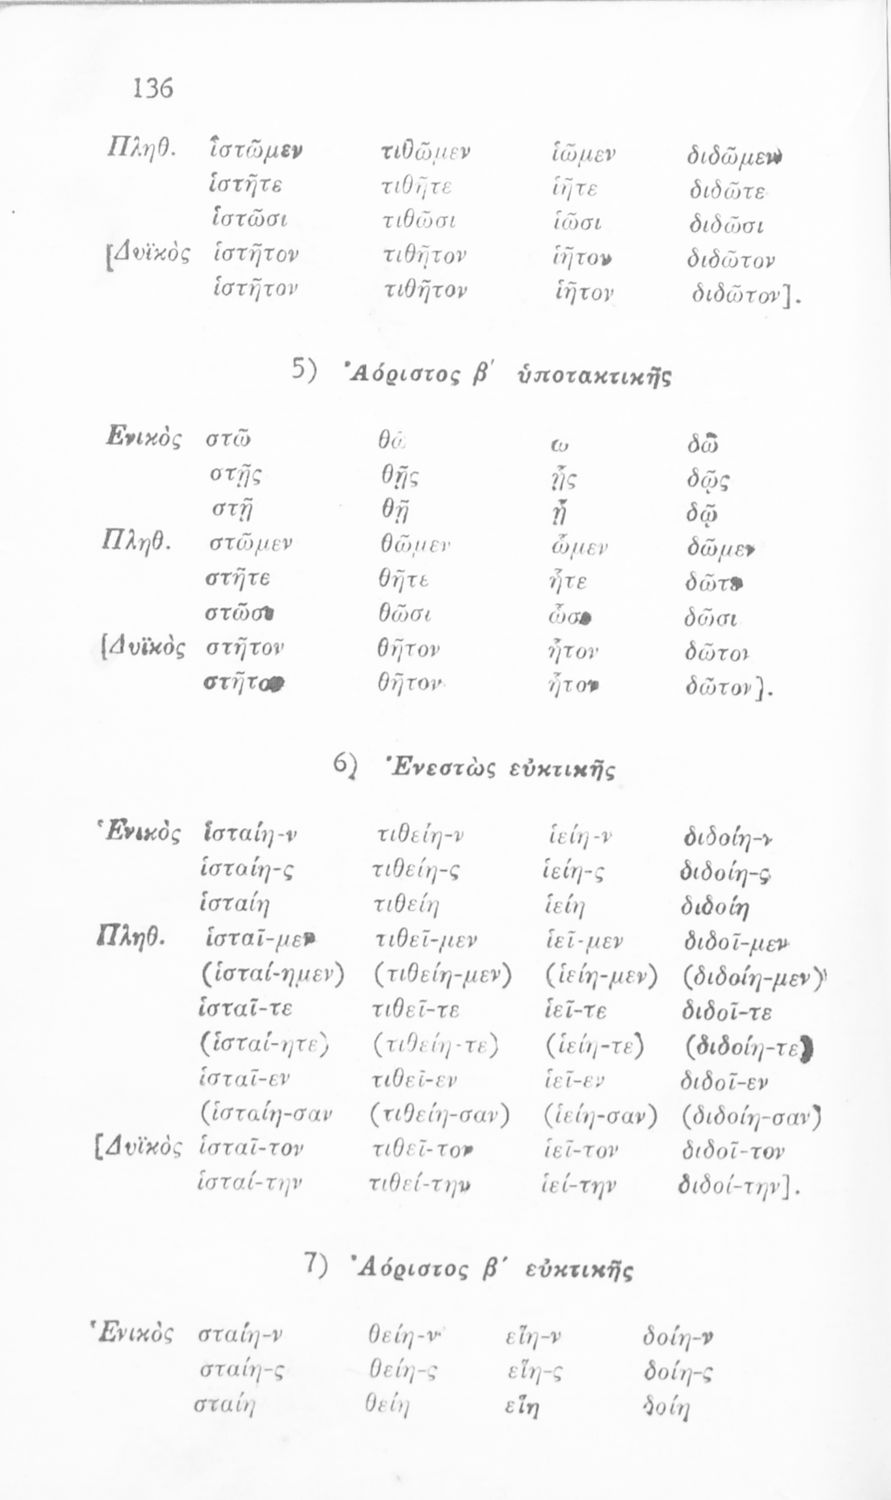 136
Πληθ. ἱστῶμεν τιθῶμεν ἱῶμεν διδῶμεν
ἱστῆτε τιθῆτε ἱῆτε διδῶτε
ἱστῶσι τιθῶσι ἱῶσι διδῶσι
[Δυϊκὸς ἱστῆτον τιθῆτον ἱῆτον διδῶτον
ἱστῆτον τιθῆτον ἱῆτον διδῶτον].
5) Ἀόριστος β΄ ὑποτακτικῆς
Ενικὸς στῶ θῶ ω δῶ
στῇς θῇς ᾖς δῷς
στῇ θῇ ᾖ δῷ
Πληθ. στῶμεν θῶμεν ὧμεν δῶμεν
στῆτε θῆτε ἧτε δῶτε
στῶσι θῶσι ὧσι δῶσι
[Δυϊκὸς στῆτον θῆτον ἧτον δῶτον
στῆτον θῆτον ἧτον δῶτον].
6) Ἐνεστὼς εὐκτικῆς
Ἑνικὸς ἱσταίη-ν τιθείη-ν ἱείη-ν διδοίη-ν
ἱσταίη-ς τιθείη-ς ἱείη-ς διδοίη-ς
ἱσταίη τιθείη ἱείη διδοίη
Πληθ. ἱσταῖ-μεν τιθεῖ-μεν ἱεῖ-μεν διδοῖ-μεν
(ἱσταί-ημεν) (τιθείη-μεν) (ἱείη-μεν) (διδοίη-μεν)
ἱσταῖ-τε τιθεῖ-τε ἱεῖ-τε διδοῖ-τε
(ἱσταί-ητε) (τιθείη-τε) (ἱείη-τε) (διδοίη-τε)
ἱσταῖ-εν τιθεῖ-εν ἱεῖ-εν διδοῖ-εν
(ἱσταίη-σαν (τιθείη-σαν) (ἱείη-σαν) (διδοίη-σαν)
[Δυϊκὸς ἱσταῖ-τον τιθεῖ-τον ἱεῖ-τον διδοῖ-τον
ἱσταί-την τιθεί-την ἱεί-την διδοί-την].
7) Ἀόριστος β΄ εὐκτικῆς
Ἑνικὸς σταίη-ν θείη-ν εἵη-ν δοίη-ν
σταίη-ς θείη-ς εἵη-ς δοίη-ς
σταίη θείη εἵη δοίη